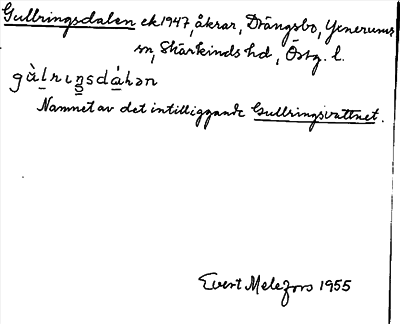 Gullringsdalen ek 1947, åkrar, Drängsbo, Yxnerums
sn, Skärkinds hd, Östg. l.
Namnet av det intilliggande Gullringsvattnet.
Evert Melefors 1955